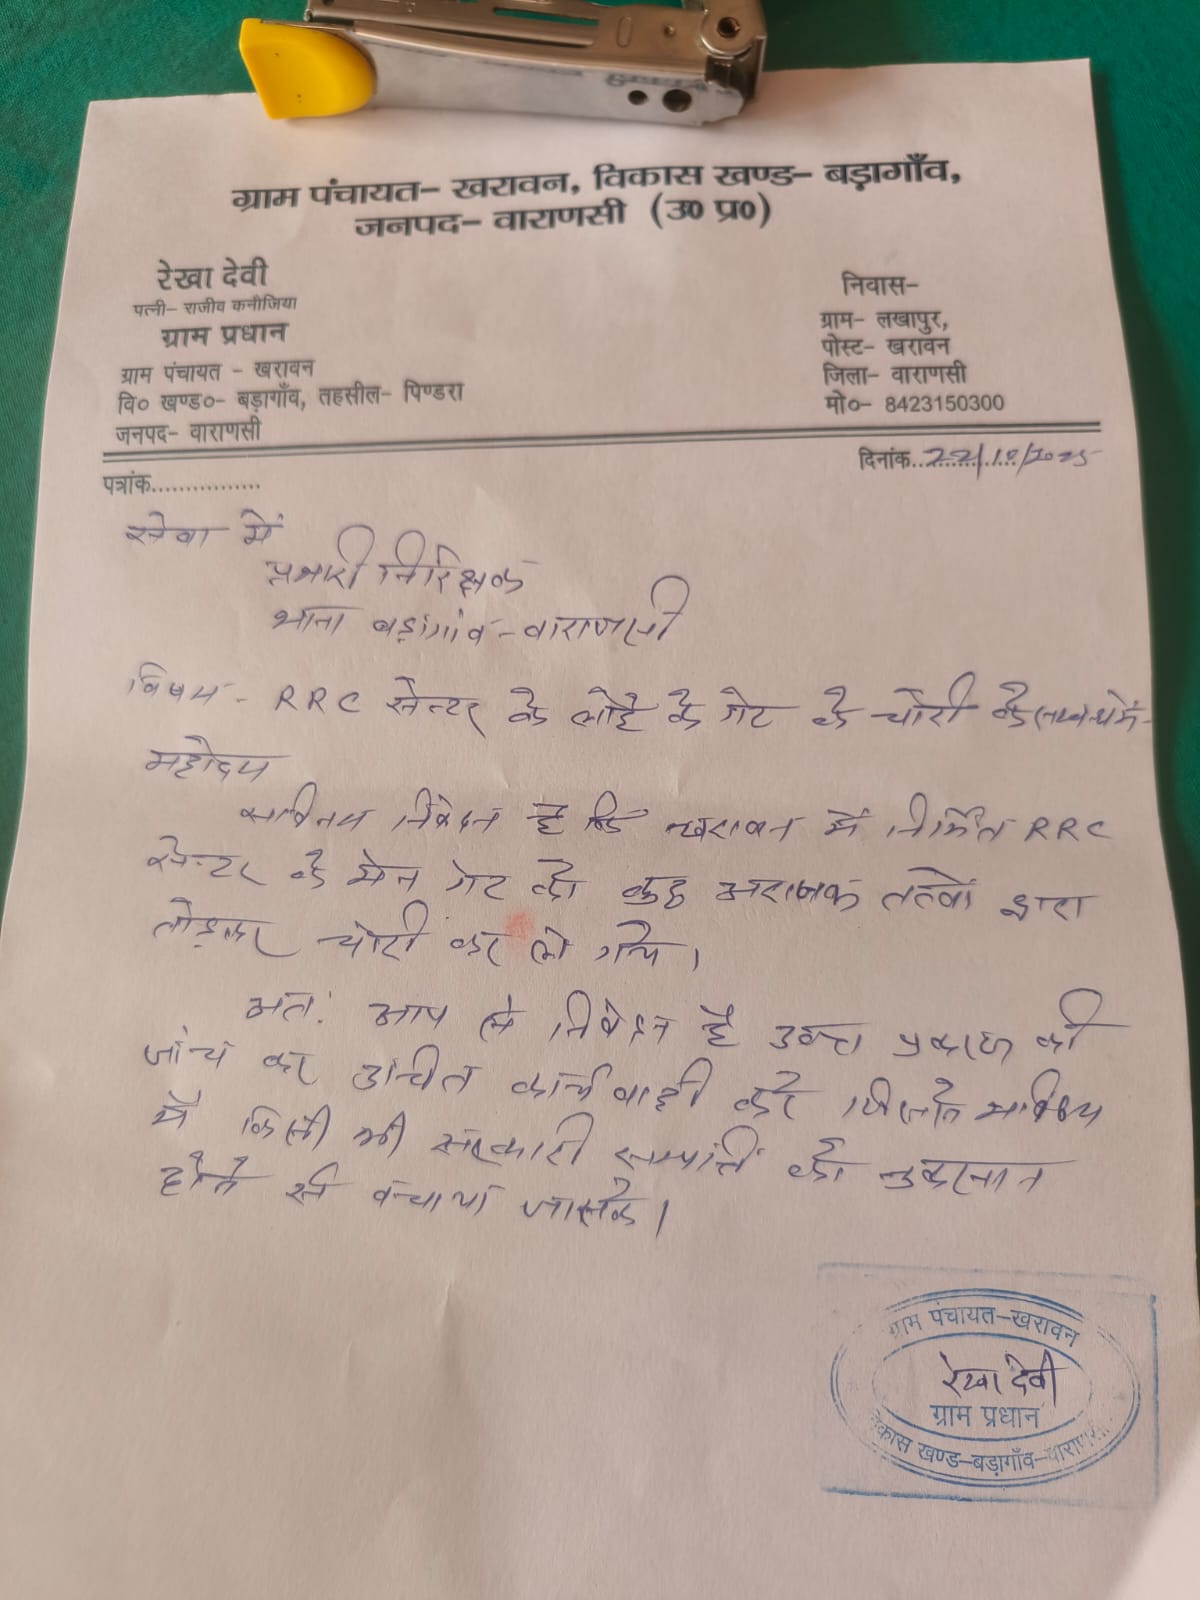 ग्राम पंचायत– खरावन, विकास खण्ड– बड़ागाँव,
जनपद– वाराणसी (उ० प्र०)
रेखा देवी
पत्नी– राजीव कनौजिया
ग्राम प्रधान
ग्राम पंचायत - खरावन
वि० खण्ड०– बड़ागाँव, तहसील– पिण्डरा
जनपद– वाराणसी
निवास–
ग्राम– लखापुर,
पोस्ट– खरावन
जिला– वाराणसी
मो०– 8423150300
पत्रांक................
दिनांक..22/10/2025
सेवा में
प्रभारी निरिक्षक
थाना बड़ागांव - वाराणसी
विषय - RRC सेन्टर के लोहे के गेट के चोरी के सम्बन्ध में -
महोदय
सविनय निवेदन है कि खरावन में निर्मित RRC
सेन्टर के मेन गेट को कुछ अराजक तत्वों द्वारा
तोड़कर चोरी कर ले गये ।
अतः आप से निवेदन है उक्त प्रकरण की
जांच कर उचित कार्यवाही करे जिससे भविष्य
में किसी भी सरकारी सम्पत्ति को नुकसान
होने से बचाया जा सके ।
ग्राम पंचायत–खरावन
रेखा देवी
ग्राम प्रधान
विकास खण्ड–बड़ागाँव–वाराणसी